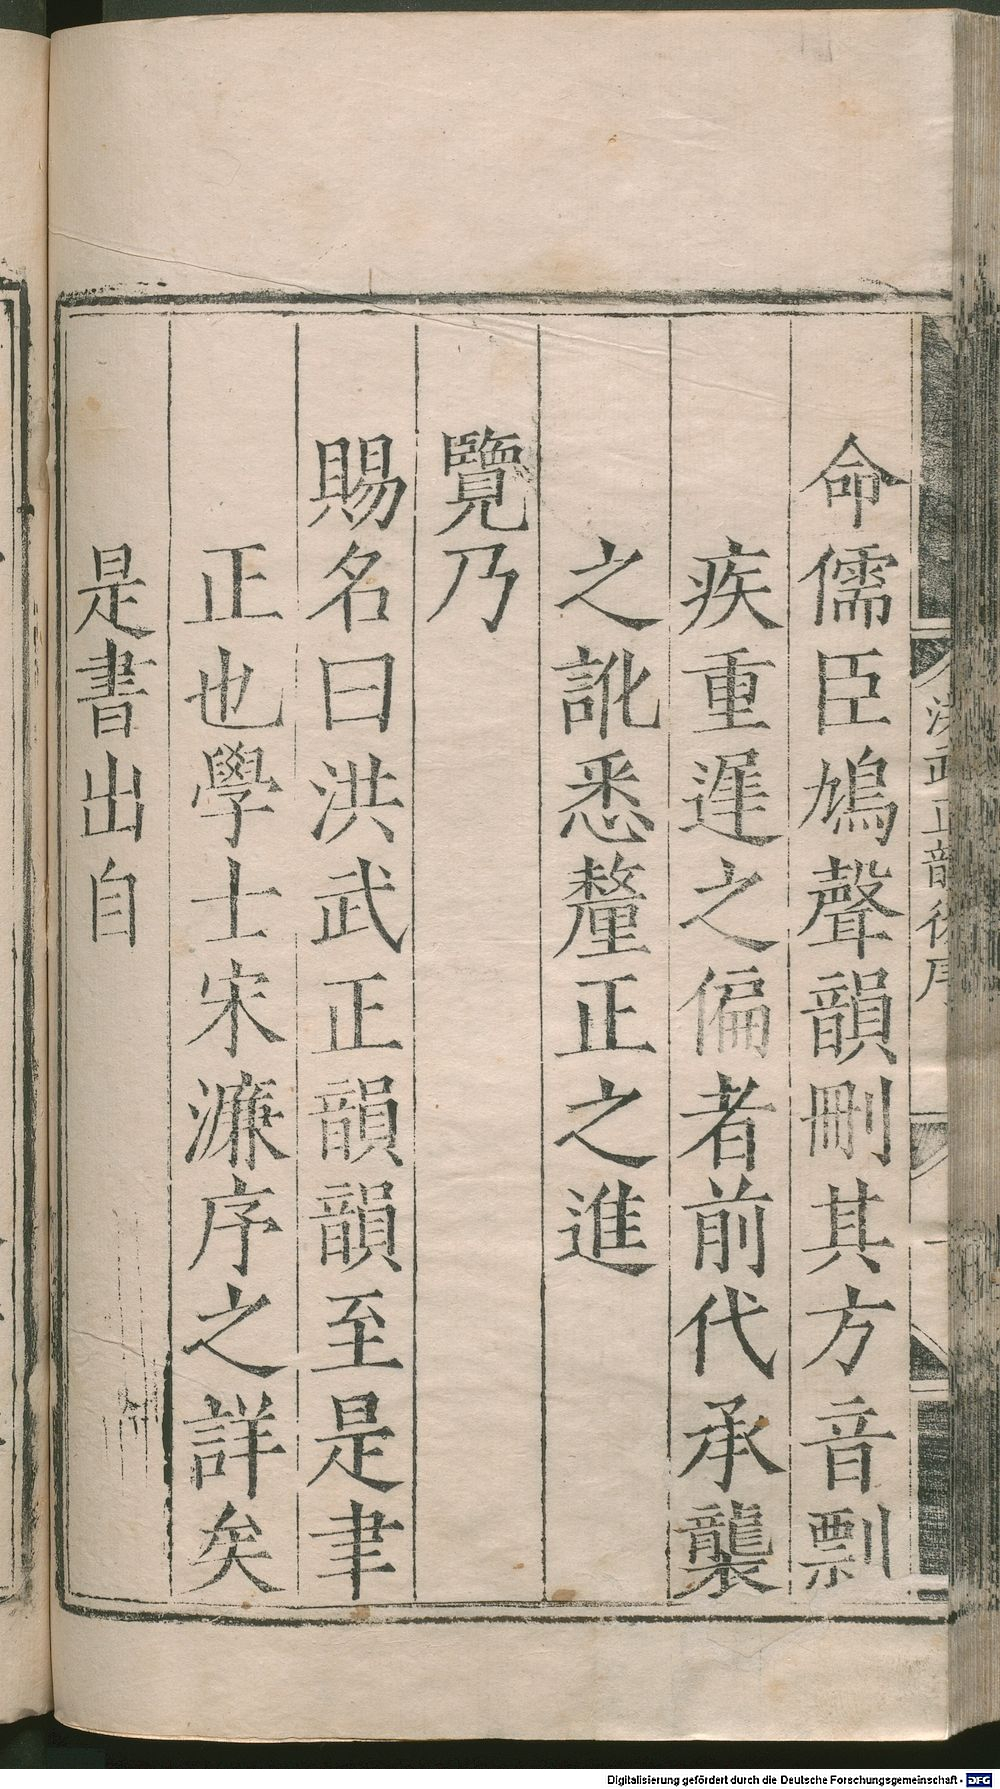 命儒臣鳩聲韻刪其方音剽
疾重遲之偏者前代承襲
之訛悉釐正之進
覽乃
賜名曰洪武正韻韻至是聿
正也學士宋濂序之詳矣
是書出自
洪武正韻後序
Digitalisierung gefördert durch die Deutsche Forschungsgemeinschaft - DFG